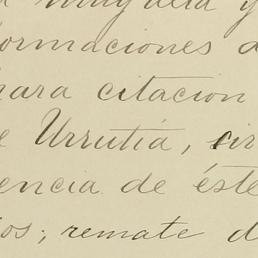 muy alta y
ormaciones d
para citacion
e Urrutia, sir
encia de éste
os; remate d